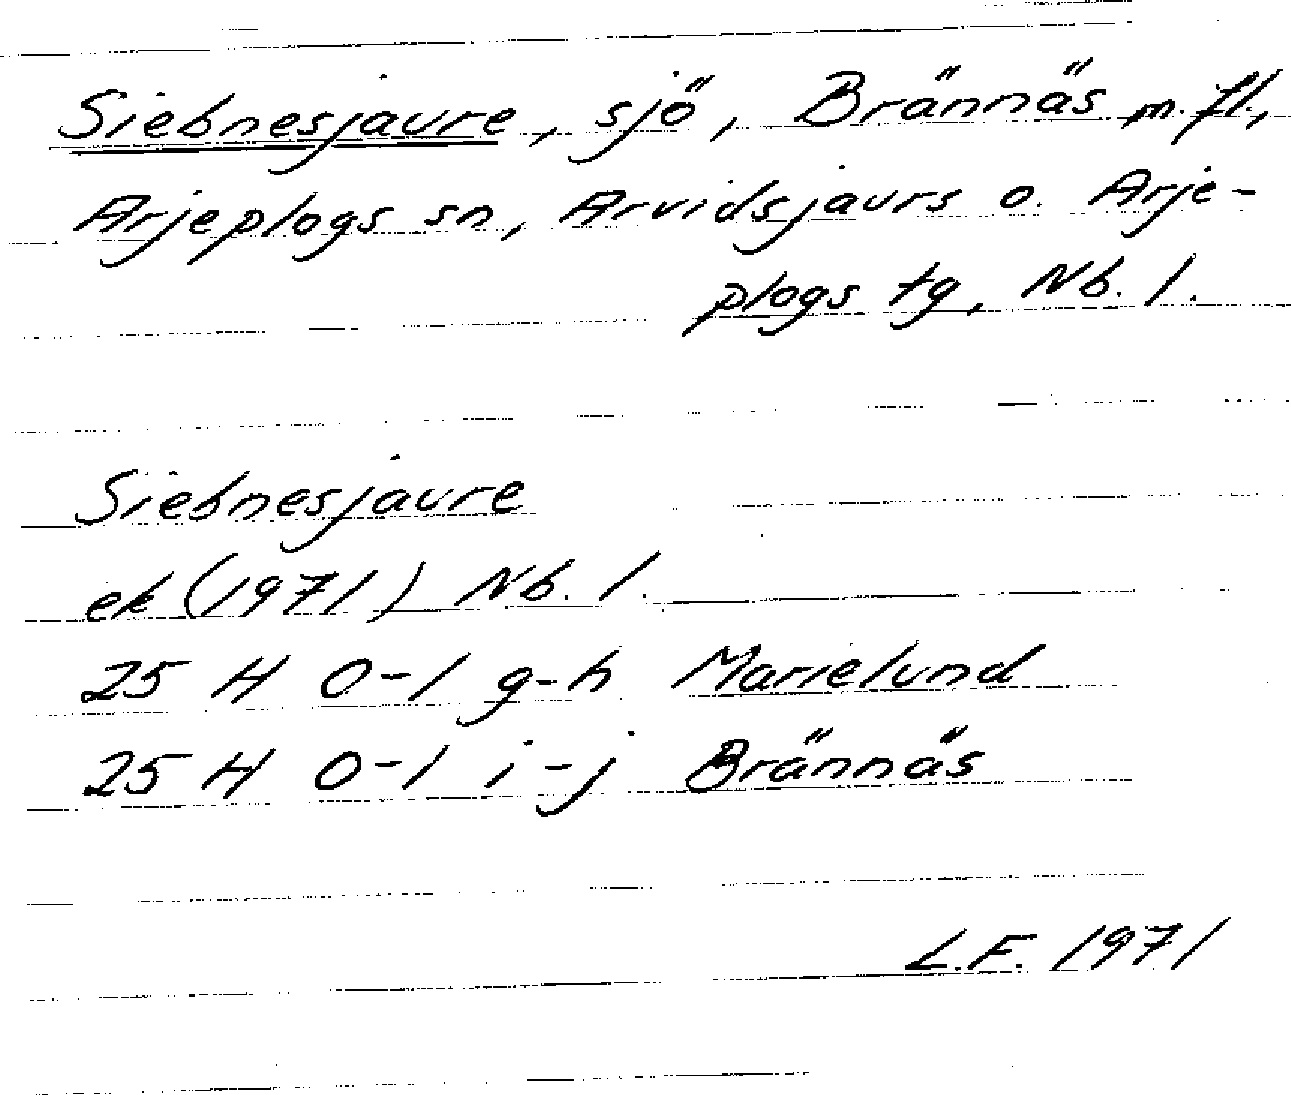 Siebnesjaure, sjö, Brännäs m.fl.,
Arjeplogs sn, Arvidsjaurs o. Arje-
plogs tg, Nb. l.
Siebnesjaure
ek (1971) Nb. l.
25 H 0-1 g-h Marielund
25 H 0-1 i-j Brännäs
L.F. 1971